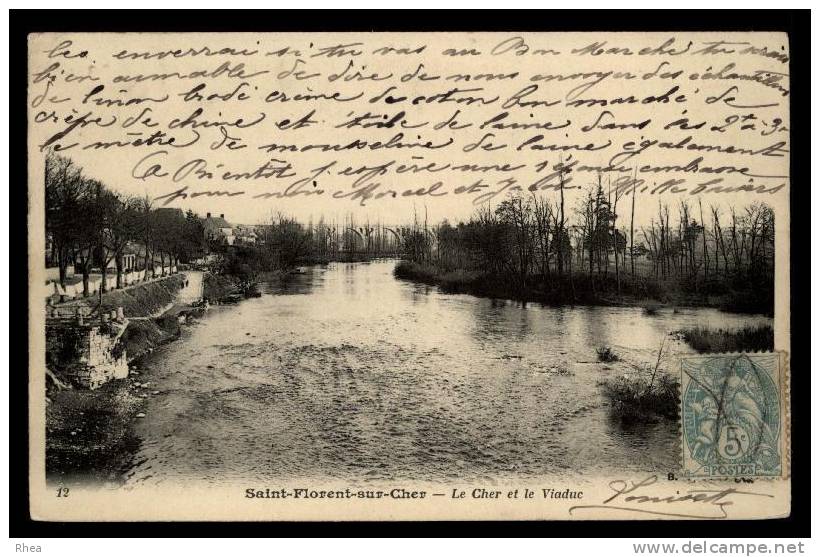 les enverrai si tu vas au Bon Marché tu serais
bien aimable de dire de nous envoyer des échantillons
de linon brodé crème de coton bon marché de
crêpe de chine et toile de laine dans les 2 à 3
le mètre de mousseline de laine également
A Bientôt j'espère une réponse embrasse
pour nous Marcel et
12 Saint-Florent-sur-Cher — Le Cher et le Viaduc
B.
5c
POSTES
Rhea
http://www.delcampe.net